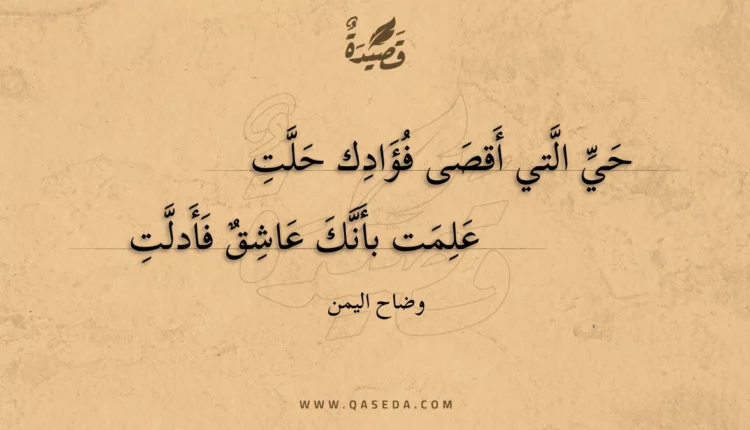 قَصِيدَةٌ
حَيِّ الَّتي أَقصَى فُؤَادِك حَلَّتِ
عَلِمَت بأَنَّكَ عَاشِقٌ فَأَدلَّتِ
وضاح اليمن
WWW.QASEDA.COM